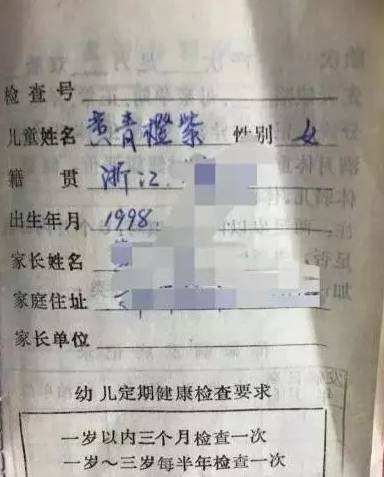 检查号
儿童姓名 黄青橙紫 性别 女
籍贯 浙江
出生年月 1998.
家长姓名
家庭住址
家长单位
幼儿定期健康检查要求
一岁以内三个月检查一次
一岁～三岁每半年检查一次